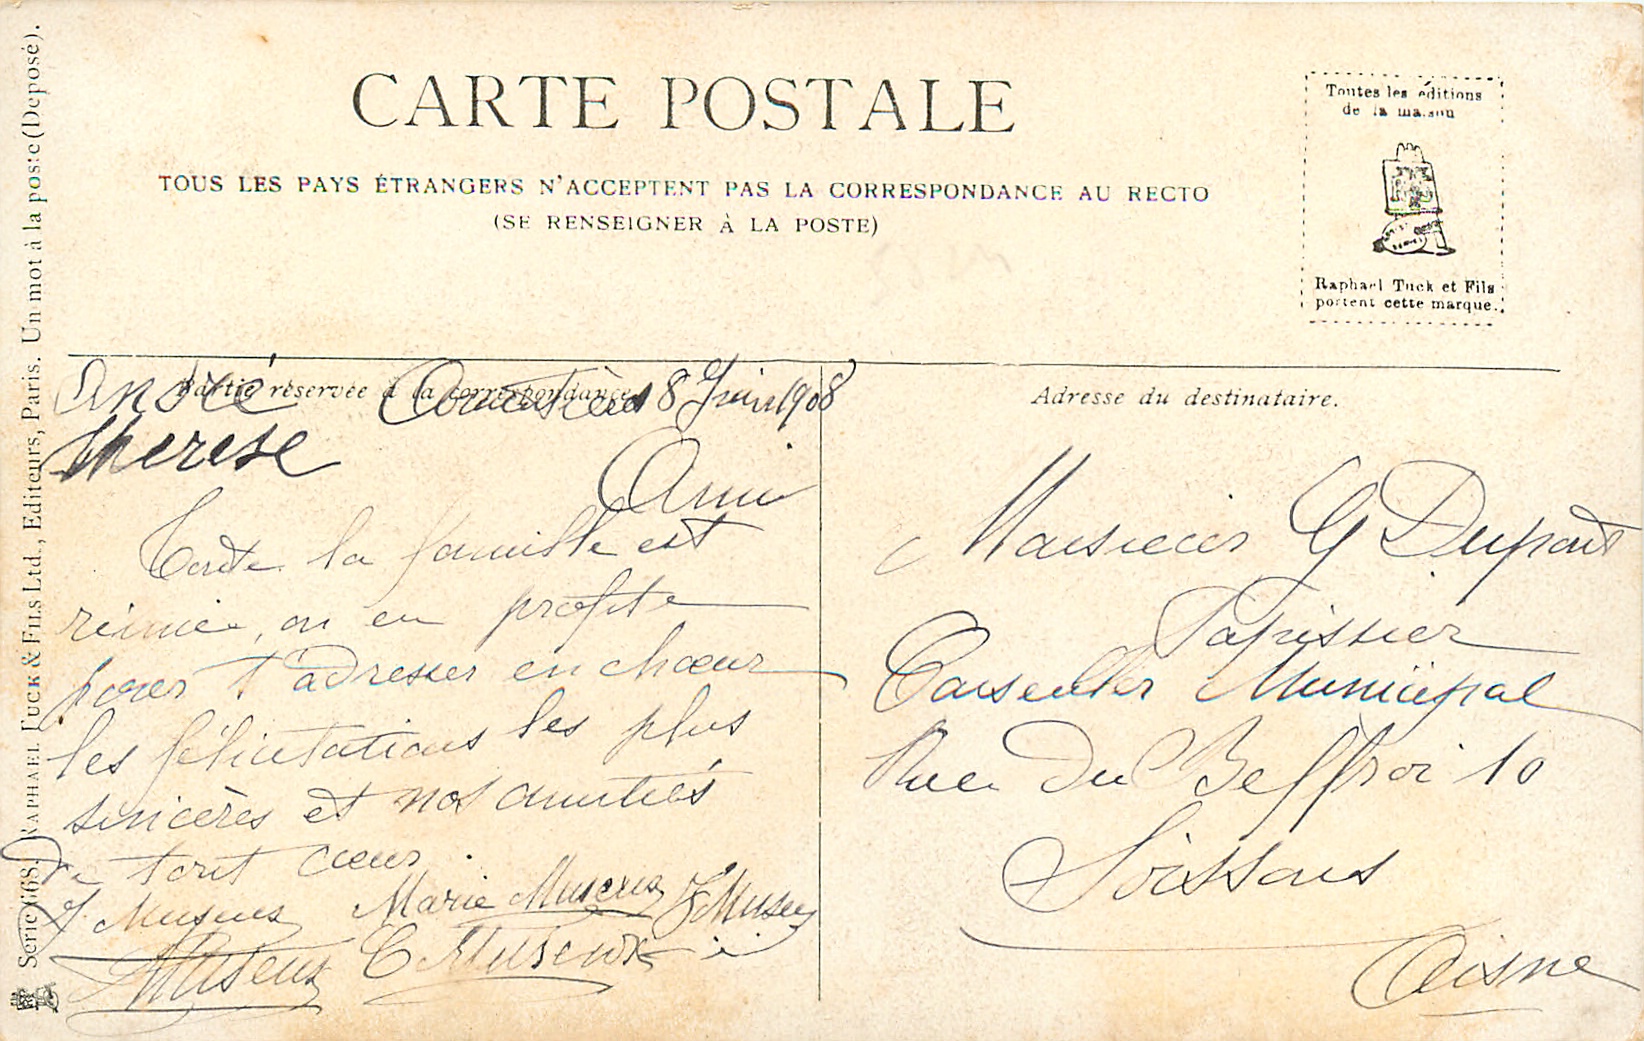 CARTE POSTALE
TOUS LES PAYS ÉTRANGERS N'ACCEPTENT PAS LA CORRESPONDANCE AU RECTO
(SE RENSEIGNER À LA POSTE)
Toutes les éditions
de la maison
Raphael Tuck et Fils
portent cette marque.
Serie 668. RAPHAEL TUCK & FILS Ltd., Editeurs, Paris. Un mot à la poste (Deposé).
Partie réservée à la correspondance
Adresse du destinataire.
André
8 Juin 1908
therese
Ami
Toute la famille est
réunie, on en profite
pour t'adresser en chœur
les félicitations les plus
sincères et nos amitiés
De tout cœur.
J. Museux Marie Museux J Museux
Museux C Museux
Monsieur G Dupont
Tapissier
Conseiller Municipal
Rue du Beffroi 10
Soissons
Aisne